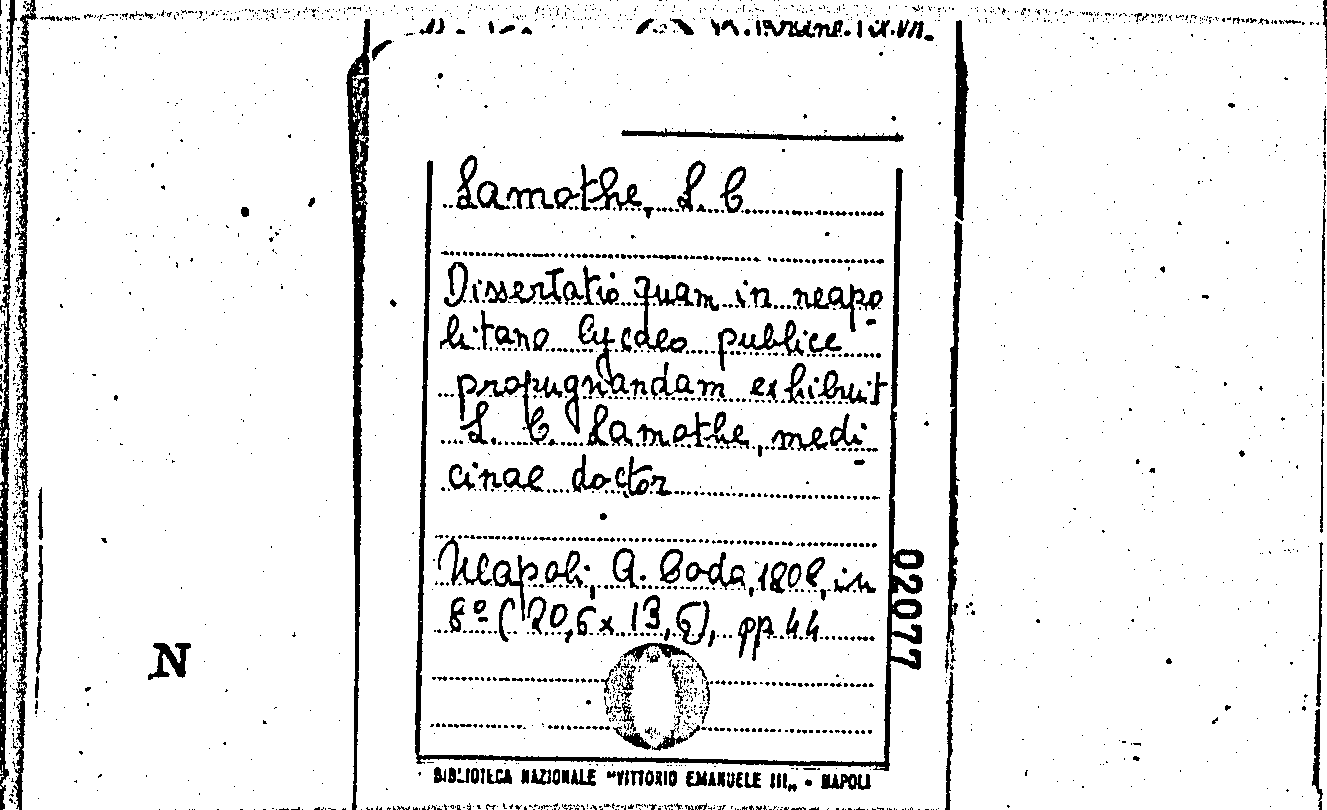 Lamothe, L. C
Dissertatio quam in neapo-
litano lycaeo publice
propugnandam exhibuit
L. C. Lamothe, medi-
cinae doctor
Neapoli, A. Coda, 1808, in
8º (20,5 x 13,5), pp 44
02077
N
BIBLIOTECA NAZIONALE "VITTORIO EMANUELE III„ - NAPOLI